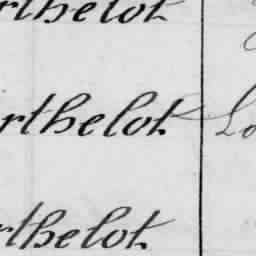 rthelot
rthelot Lo
rthelot